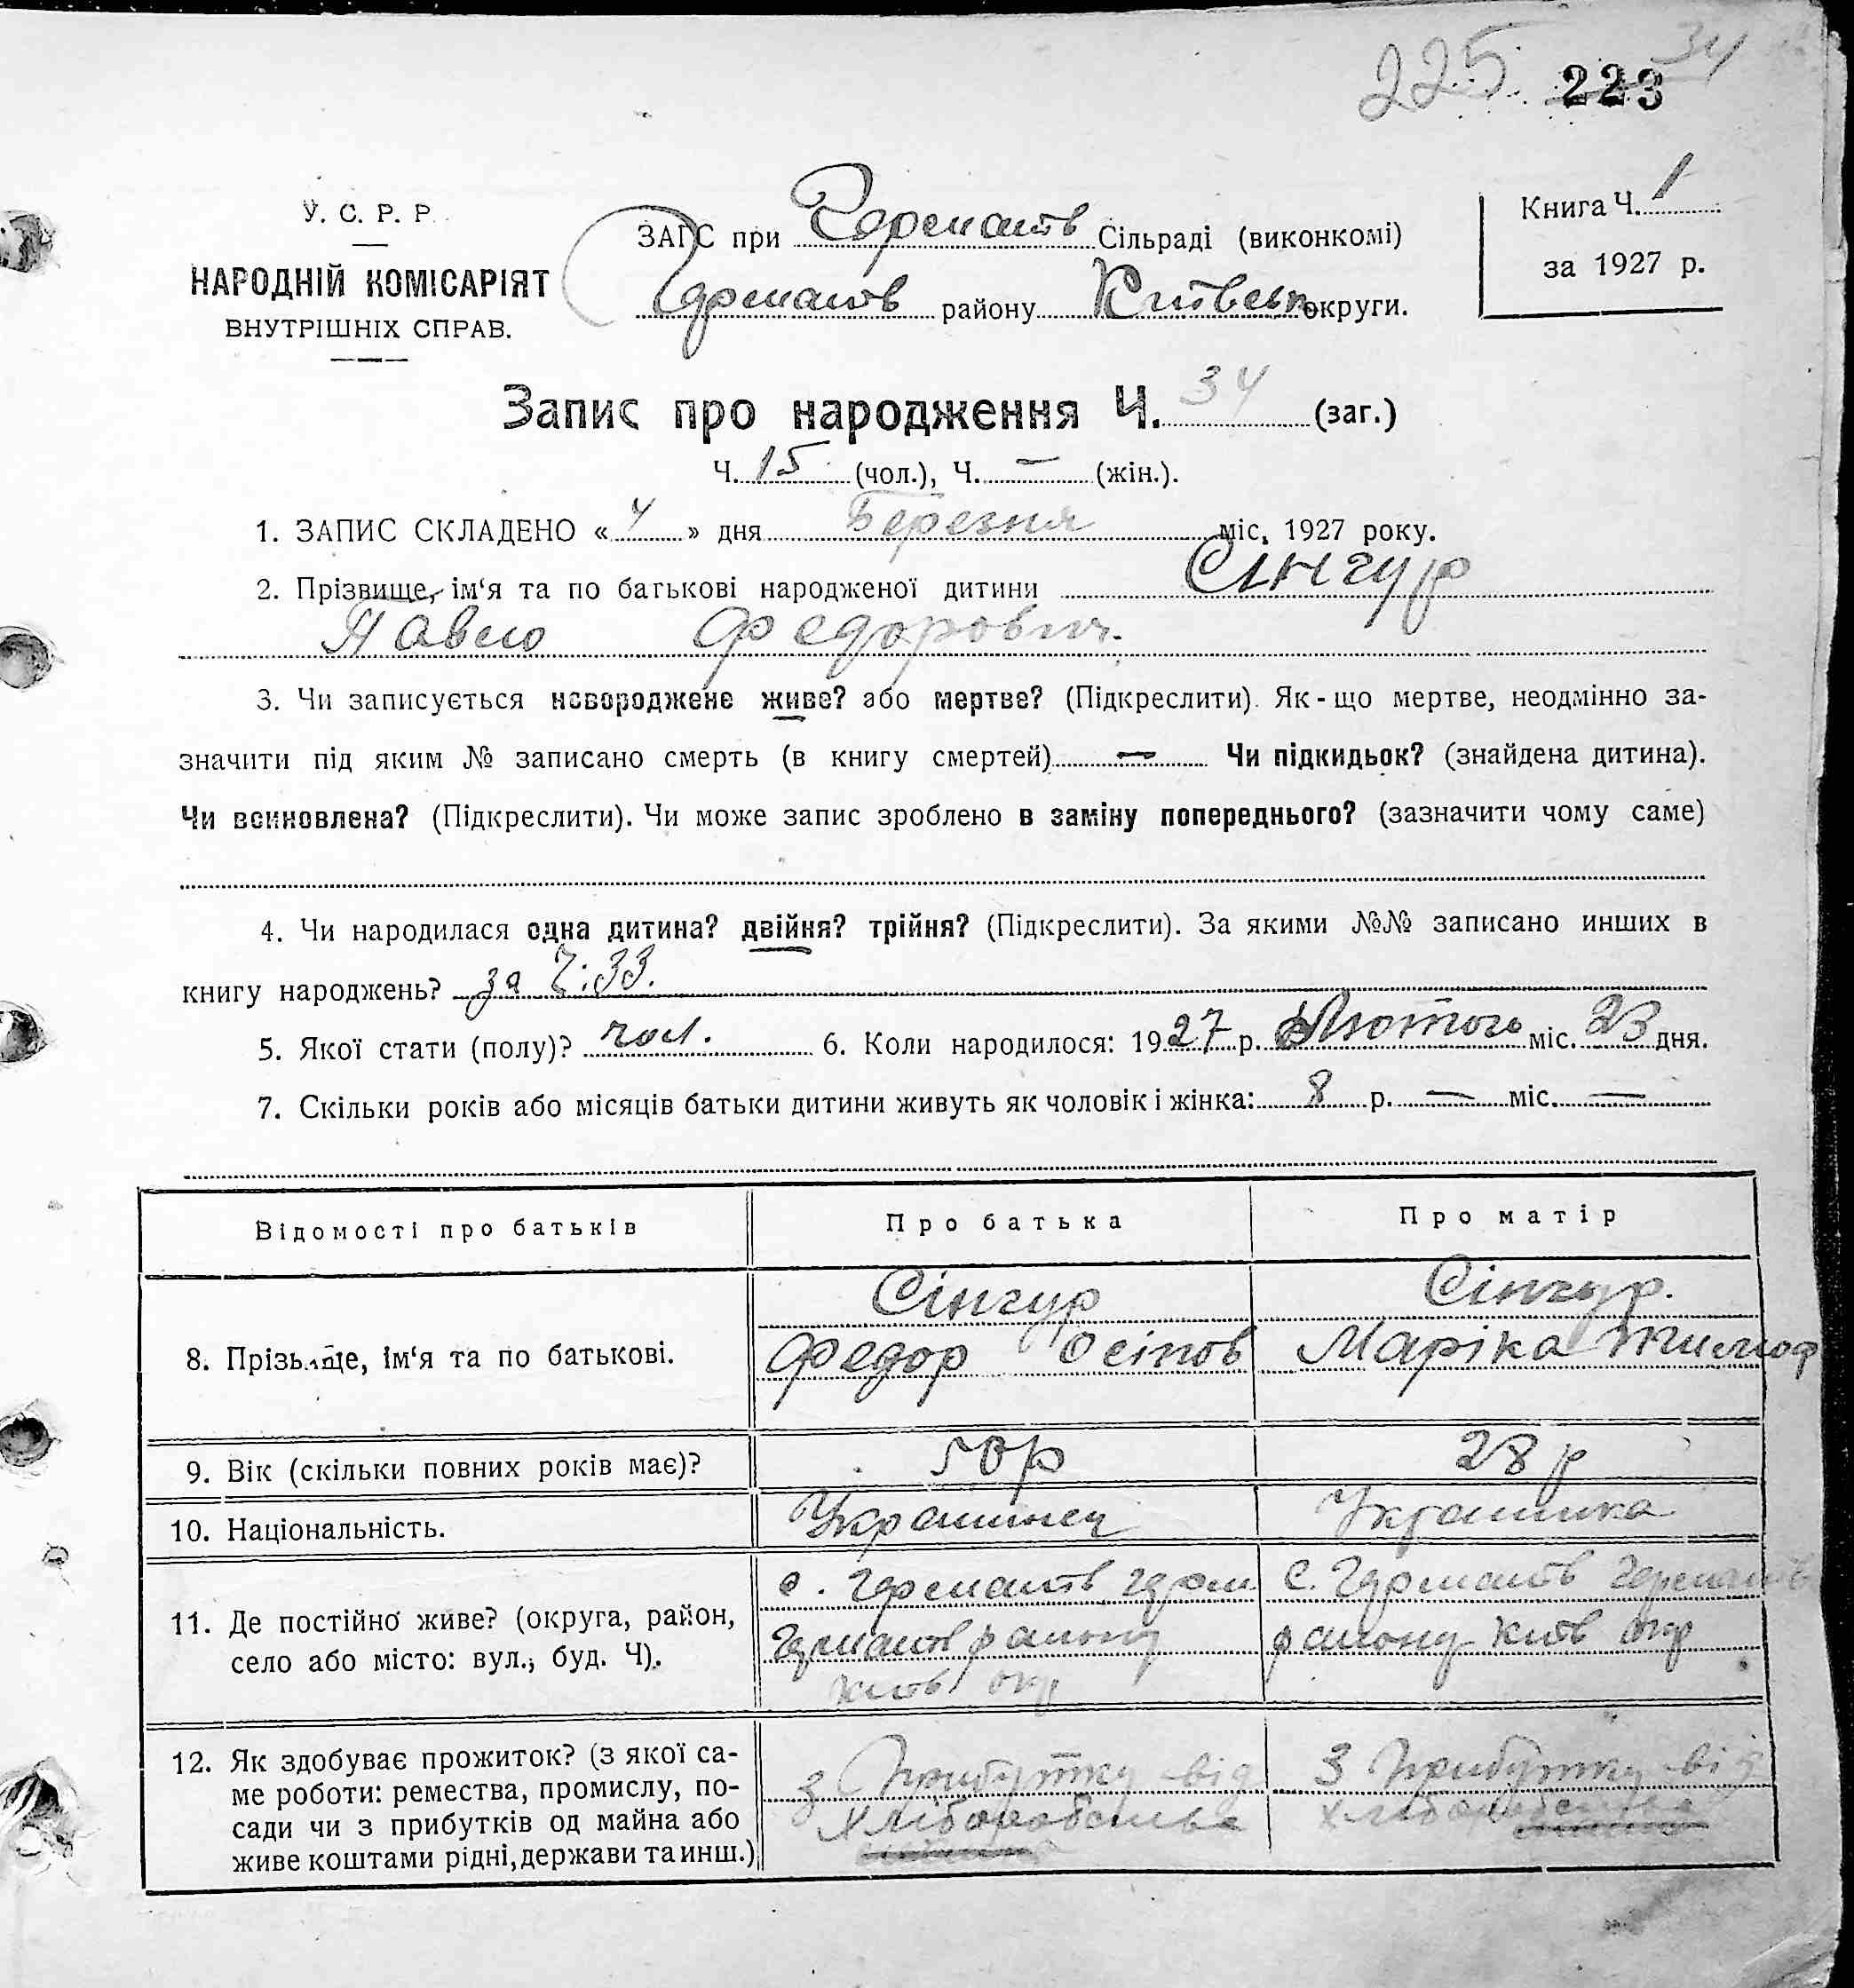 225 223 34
У. С. Р. Р.
НАРОДНІЙ КОМІСАРІЯТ
ВНУТРІШНІХ СПРАВ.
ЗАГС при Германів Сільраді (виконкомі)
Германів району Київськ округи.
Книга Ч. 1
за 1927 р.
Запис про народження Ч. 34 (заг.)
Ч. 15 (чол.), Ч. — (жін.).
1. ЗАПИС СКЛАДЕНО « 4 » дня Березня міс. 1927 року.
2. Прізвище, ім‘я та по батькові народженої дитини Сінгур
Павло Федорович.
3. Чи записується новороджене живе? або мертве? (Підкреслити). Як-що мертве, неодмінно за-
значити під яким № записано смерть (в книгу смертей) — Чи підкидьок? (знайдена дитина).
Чи всиновлена? (Підкреслити). Чи може запис зроблено в заміну попереднього? (зазначити чому саме)
4. Чи народилася одна дитина? двійня? трійня? (Підкреслити). За якими №№ записано инших в
книгу народжень? за Ч: 33.
5. Якої стати (полу)? чол. 6. Коли народилося: 1927 р. Лютого міс. 23 дня.
7. Скільки років або місяців батьки дитини живуть як чоловік і жінка: 8 р. — міс. —
Відомості про батьків Про батька Про матір
8. Прізвище, ім‘я та по батькові.
Сінгур Сінгур.
Федор Осіпов Маріка Тимоф
9. Вік (скільки повних років має)? 50 р 28 р
10. Національність. Українец Українка
11. Де постійно живе? (округа, район,
село або місто: вул., буд. Ч).
с. Германів Герм с. Германів Германів
Германів району району Київ окр
Київ окр
12. Як здобуває прожиток? (з якої са-
ме роботи: ремества, промислу, по-
сади чи з прибутків од майна або
живе коштами рідні, держави та инш.)
З прибутку від З прибутку від
хліборобства хліборобства